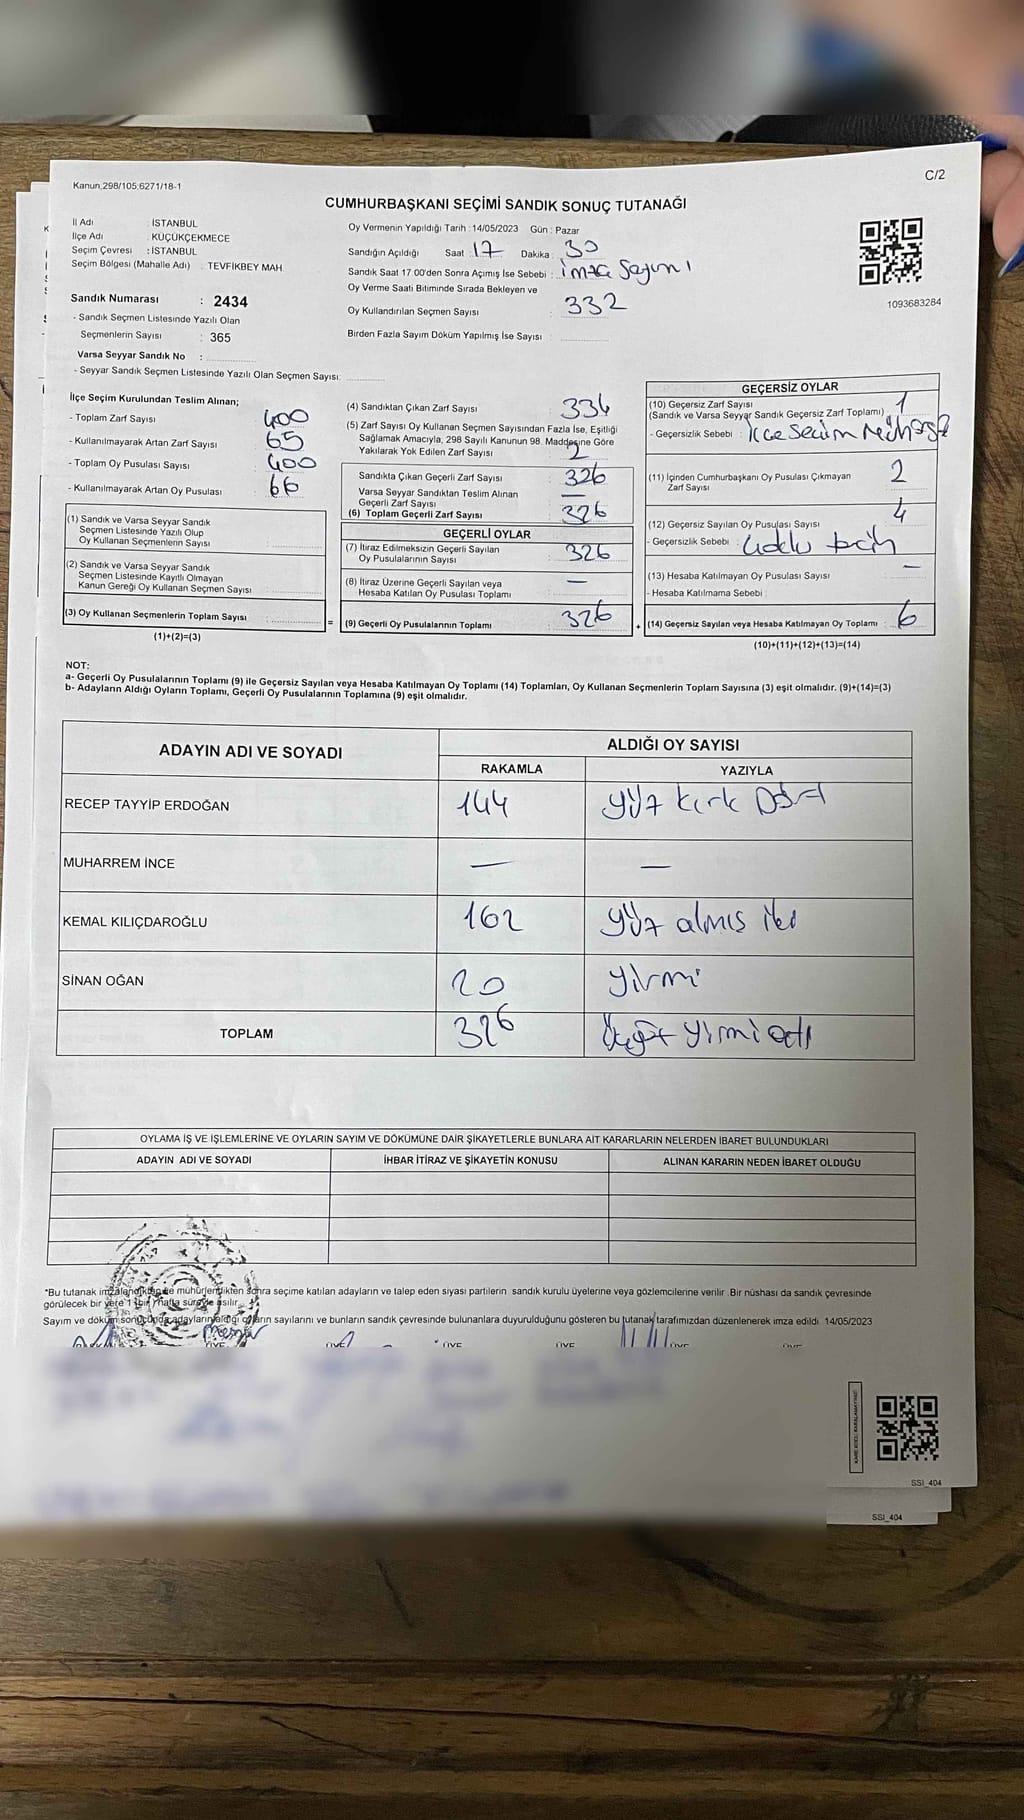 C/2
Kanun;298/105;6271/18-1
CUMHURBAŞKANI SEÇİMİ SANDIK SONUÇ TUTANAĞI
İl Adı : İSTANBUL
İlçe Adı : KÜÇÜKÇEKMECE
Seçim Çevresi : İSTANBUL
Seçim Bölgesi (Mahalle Adı) : TEVFİKBEY MAH.
Sandık Numarası : 2434
- Sandık Seçmen Listesinde Yazılı Olan
Seçmenlerin Sayısı : 365
Varsa Seyyar Sandık No :
- Seyyar Sandık Seçmen Listesinde Yazılı Olan Seçmen Sayısı:
Oy Vermenin Yapıldığı Tarih : 14/05/2023 Gün : Pazar
Sandığın Açıldığı Saat : 17 Dakika : 30
Sandık Saat 17.00'den Sonra Açımış İse Sebebi : imza Sayımı
Oy Verme Saati Bitiminde Sırada Bekleyen ve
Oy Kullandırılan Seçmen Sayısı : 332
Birden Fazla Sayım Döküm Yapılmış İse Sayısı :
1093683284
İlçe Seçim Kurulundan Teslim Alınan;
- Toplam Zarf Sayısı : 400
- Kullanılmayarak Artan Zarf Sayısı : 65
- Toplam Oy Pusulası Sayısı : 400
- Kullanılmayarak Artan Oy Pusulası : 66
(1) Sandık ve Varsa Seyyar Sandık
Seçmen Listesinde Yazılı Olup
Oy Kullanan Seçmenlerin Sayısı :
(2) Sandık ve Varsa Seyyar Sandık
Seçmen Listesinde Kayıtlı Olmayan
Kanun Gereği Oy Kullanan Seçmen Sayısı :
(3) Oy Kullanan Seçmenlerin Toplam Sayısı :
(1)+(2)=(3)
=
(4) Sandıktan Çıkan Zarf Sayısı : 334
(5) Zarf Sayısı Oy Kullanan Seçmen Sayısından Fazla İse, Eşitliği
Sağlamak Amacıyla, 298 Sayılı Kanunun 98. Maddesine Göre
Yakılarak Yok Edilen Zarf Sayısı : 2
Sandıkta Çıkan Geçerli Zarf Sayısı : 326
Varsa Seyyar Sandıktan Teslim Alınan
Geçerli Zarf Sayısı : —
(6) Toplam Geçerli Zarf Sayısı : 326
GEÇERLİ OYLAR
(7) İtiraz Edilmeksizin Geçerli Sayılan
Oy Pusulalarının Sayısı : 326
(8) İtiraz Üzerine Geçerli Sayılan veya
Hesaba Katılan Oy Pusulası Toplamı : —
(9) Geçerli Oy Pusulalarının Toplamı : 326
+
GEÇERSİZ OYLAR
(10) Geçersiz Zarf Sayısı : 1
(Sandık ve Varsa Seyyar Sandık Geçersiz Zarf Toplamı)
- Geçersizlik Sebebi : ilçe Secim Mührsz
(11) İçinden Cumhurbaşkanı Oy Pusulası Çıkmayan
Zarf Sayısı : 2
(12) Geçersiz Sayılan Oy Pusulası Sayısı : 4
- Geçersizlik Sebebi :
(13) Hesaba Katılmayan Oy Pusulası Sayısı : —
- Hesaba Katılmama Sebebi :
(14) Geçersiz Sayılan veya Hesaba Katılmayan Oy Toplamı : 6
(10)+(11)+(12)+(13)=(14)
NOT:
a- Geçerli Oy Pusulalarının Toplamı (9) ile Geçersiz Sayılan veya Hesaba Katılmayan Oy Toplamı (14) Toplamları, Oy Kullanan Seçmenlerin Toplam Sayısına (3) eşit olmalıdır. (9)+(14)=(3)
b- Adayların Aldığı Oyların Toplamı, Geçerli Oy Pusulalarının Toplamına (9) eşit olmalıdır.
ADAYIN ADI VE SOYADI ALDIĞI OY SAYISI
RAKAMLA YAZIYLA
RECEP TAYYİP ERDOĞAN 144 yüz kırk Dört
MUHARREM İNCE — —
KEMAL KILIÇDAROĞLU 162 yüz almış iki
SİNAN OĞAN 20 yirmi
TOPLAM 326 Üçyüz yirmi altı
OYLAMA İŞ VE İŞLEMLERİNE VE OYLARIN SAYIM VE DÖKÜMÜNE DAİR ŞİKAYETLERLE BUNLARA AİT KARARLARIN NELERDEN İBARET BULUNDUKLARI
ADAYIN ADI VE SOYADI İHBAR İTİRAZ VE ŞİKAYETİN KONUSU ALINAN KARARIN NEDEN İBARET OLDUĞU
*Bu tutanak imzalandıktan ve mühürlendikten sonra seçime katılan adayların ve talep eden siyasi partilerin sandık kurulu üyelerine veya gözlemcilerine verilir. Bir nüshası da sandık çevresinde
görülecek bir yere 1 (bir) hafta süreyle asılır.
Sayım ve döküm sonucunda adayların aldığı oyların sayılarını ve bunların sandık çevresinde bulunanlara duyurulduğunu gösteren bu tutanak tarafımızdan düzenlenerek imza edildi. 14/05/2023
ÜYE ÜYE ÜYE ÜYE ÜYE ÜYE
SSI_404
SSI_404